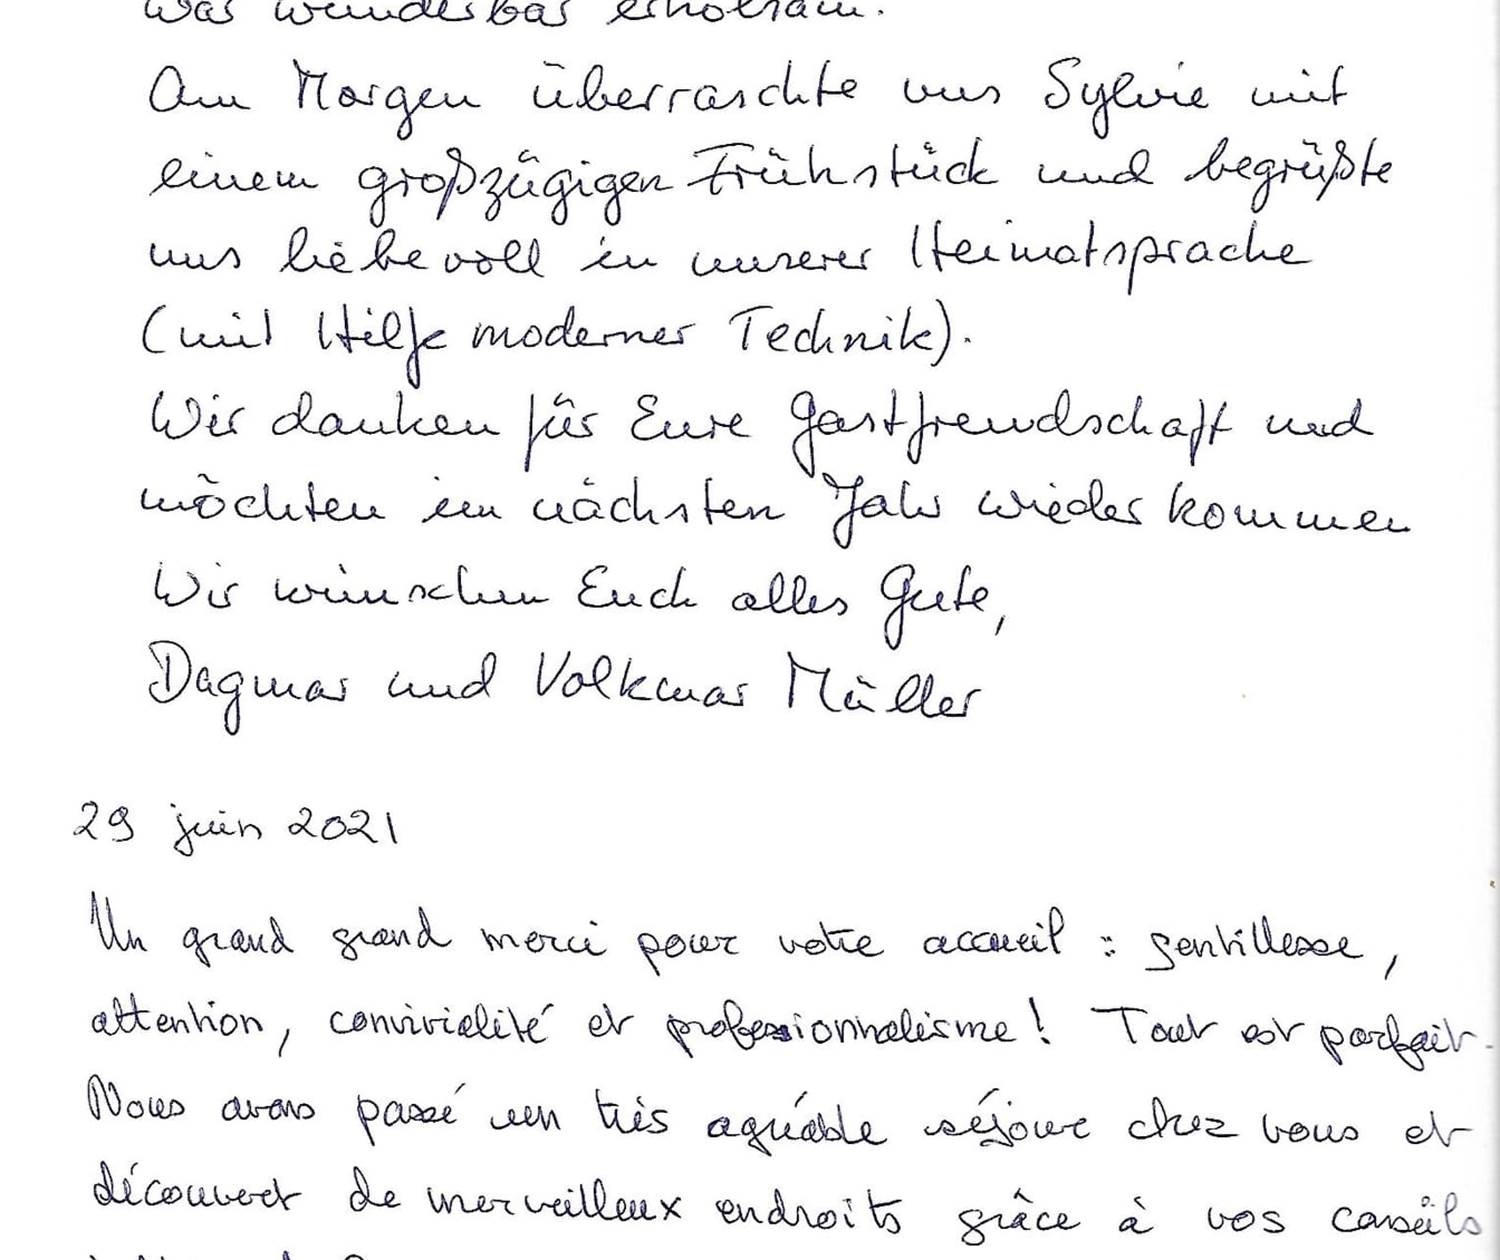 was wunderbar erholsam.
Am Morgen überraschte uns Sylvie mit
einem großzügigen Frühstück und begrüßte
uns liebevoll in unserer Heimatsprache
(mit Hilfe moderner Technik).
Wir danken für Eure Gastfreundschaft und
möchten im nächsten Jahr wieder kommen
Wir wünschen Euch alles Gute,
Dagmar und Volkmar Müller
29 juin 2021
Un grand grand merci pour votre accueil : gentillesse,
attention, convivialité et professionnalisme ! Tout est parfait.
Nous avons passé un très agréable séjour chez vous et
découvert de merveilleux endroits grâce à vos conseils